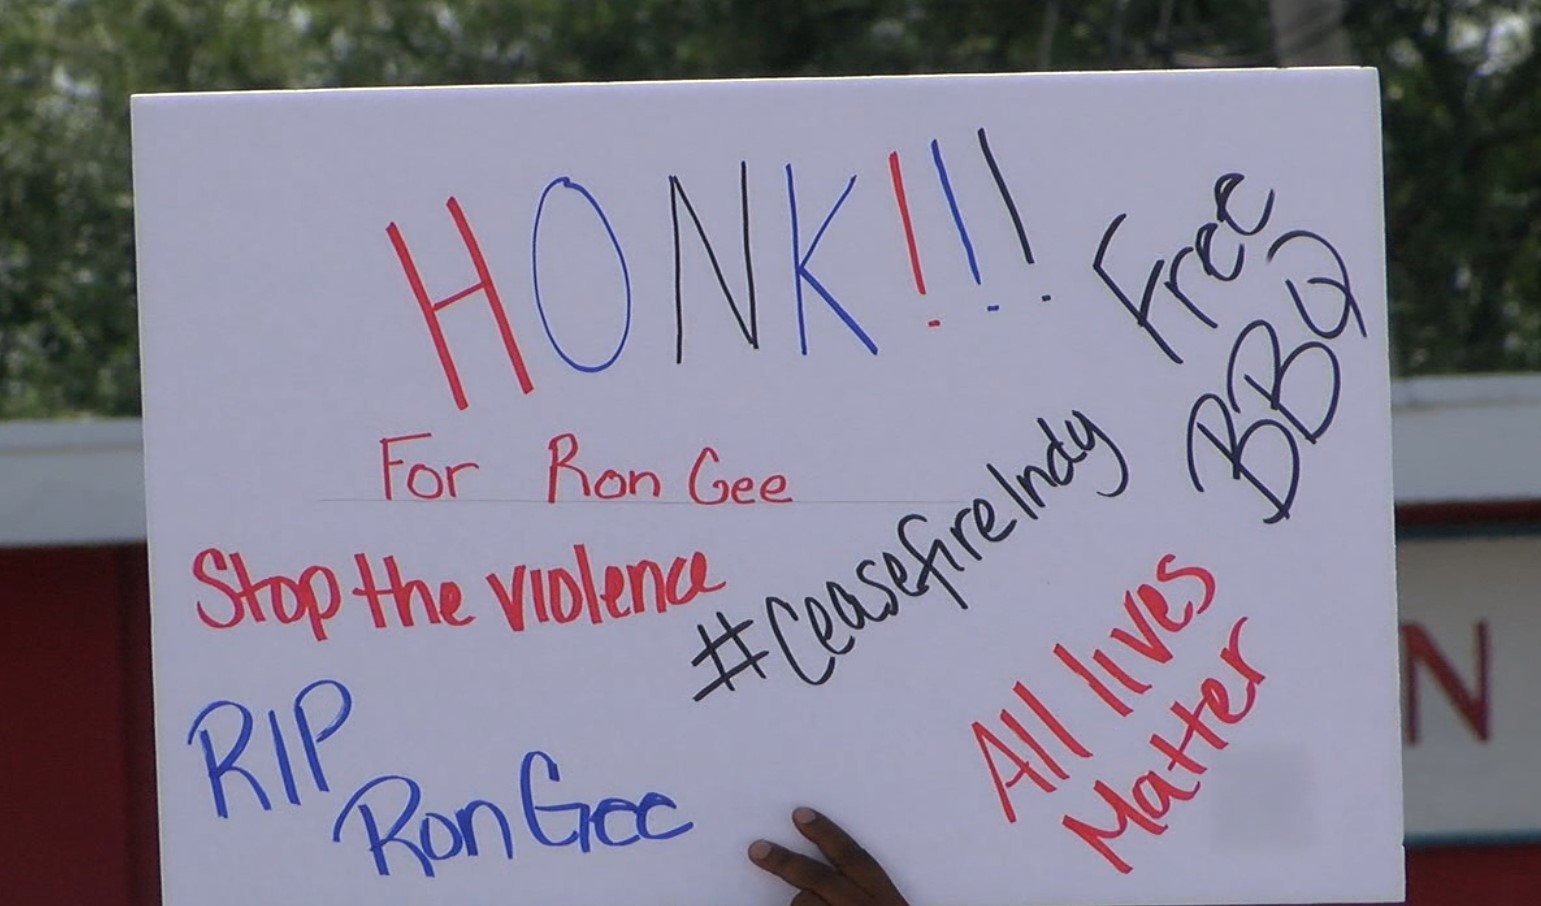 HONK!!!
Free
BBQ
For Ron Gee
#CeasefireIndy
Stop the violence
All lives
Matter
RIP
Ron Gee
N